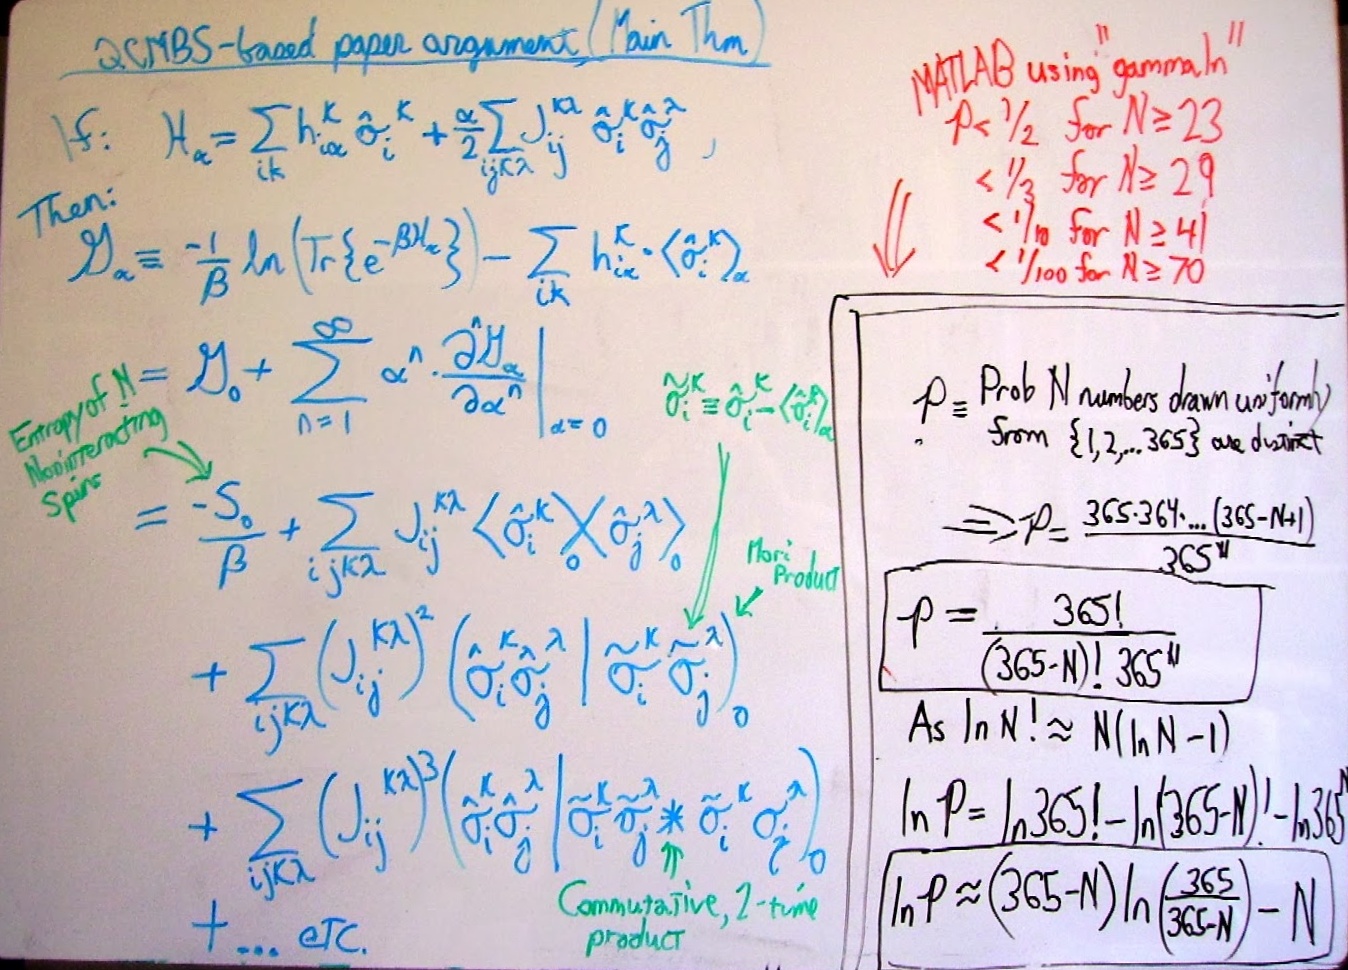 QCMBS-based paper argument (Main Thm)
If: H_α = Σ_{ik} h_{iα}^K σ̂_i^K + α/2 Σ_{ijKλ} J_{ij}^{Kλ} σ̂_i^K σ̂_j^λ ,
Then:
G_α ≡ -1/β ln(Tr{e^{-βH_α}}) - Σ_{ik} h_{iα}^K · ⟨σ̂_i^K⟩_α
= G_0 + Σ_{n=1}^∞ α^n · ∂^n G_α / ∂α^n |_{α=0}
Entropy of N
Noninteracting
Spins
σ̃_i^K ≡ σ̂_i^K - ⟨σ̂_i^K⟩_α
= -S_0/β + Σ_{ijKλ} J_{ij}^{Kλ} ⟨σ̂_i^K⟩_0 ⟨σ̂_j^λ⟩_0
Mori
Product
+ Σ_{ijKλ} (J_{ij}^{Kλ})^2 (σ̂_i^K σ̂_j^λ | σ̃_i^K σ̃_j^λ)_0
+ Σ_{ijKλ} (J_{ij}^{Kλ})^3 (σ̂_i^K σ̂_j^λ | σ̃_i^K σ̃_j^λ * σ̃_i^K σ_j^λ)_0
Commutative, 2-time
product
+ ... etc.
MATLAB using "gammaln"
P < 1/2 for N ≥ 23
< 1/3 for N ≥ 29
< 1/10 for N ≥ 41
< 1/100 for N ≥ 70
P ≡ Prob N numbers drawn uniformly
from {1,2,...365} are distinct
⇒ P = 365·364·...(365-N+1) / 365^N
P = 365! / (365-N)! 365^N
As ln N! ≈ N(ln N - 1)
ln P = ln 365! - ln(365-N)! - ln 365^N
ln P ≈ (365-N) ln(365/(365-N)) - N